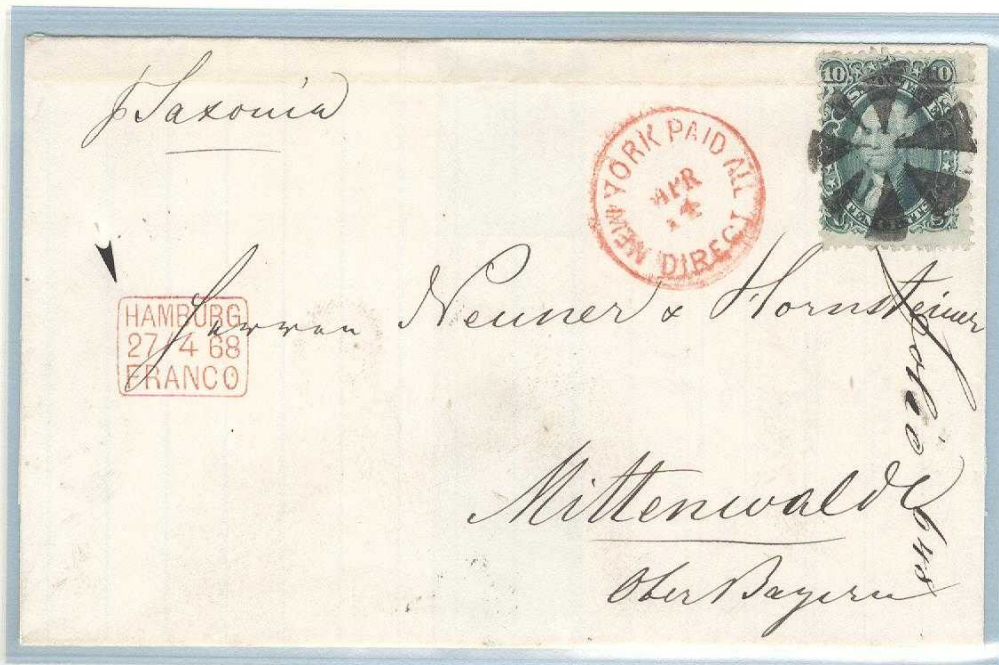 pr Saxonia
10 10
NEW YORK PAID ALL
APR
14
DIRECT
HAMBURG
27 4 68
FRANCO
Herren Neuner & Hornsteiner
Mittenwald
Ober Bayern
648